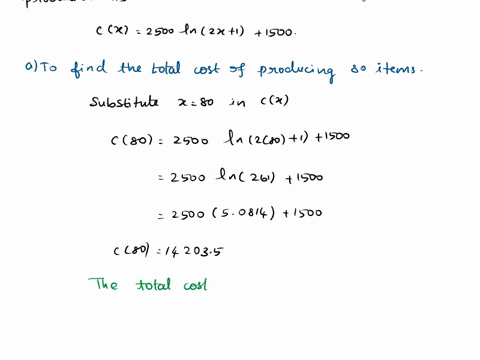 C(x) = 2500 ln(2x+1) + 1500.
a) To find the total cost of producing 80 items.
Substitute x=80 in C(x)
C(80) = 2500 ln(2(80)+1) + 1500
= 2500 ln(261) + 1500
= 2500 (5.0814) + 1500
C(80) = 14203.5
The total cost